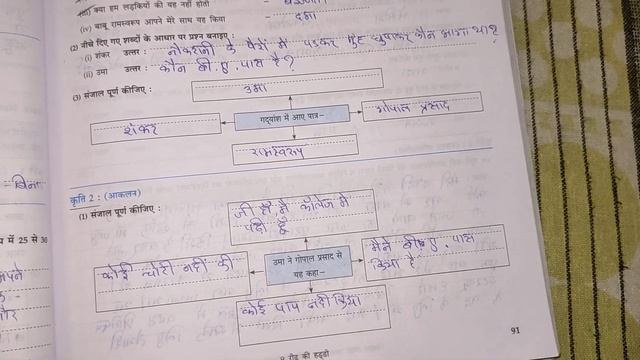 (iii) क्या हम लड़कियों की यह नहीं होती
(iv) बाबू रामस्वरूप आपने मेरे साथ यह किया - दगा
(2) नीचे दिए गए शब्दों के आधार पर प्रश्न बनाइए :
(i) शंकर उत्तर : नौकरानी के पैरों में पडकर मुँह छुपाकर कौन भागा था?
(ii) उमा उत्तर : कौन बी.ए. पास है?
(3) संजाल पूर्ण कीजिए :
उमा
शंकर
गद्यांश में आए पात्र-
गोपाल प्रसाद
रामस्वरूप
कृति 2 : (आकलन)
(1) संजाल पूर्ण कीजिए :
जी हाँ, मैं कॉलेज में
पढी हूँ
कोई चोरी नहीं की
उमा ने गोपाल प्रसाद से
यह कहा-
मैंने बी.ए. पास
किया है
कोई पाप नहीं किया
में 25 से 30
91
रीढ़ की हड्डी